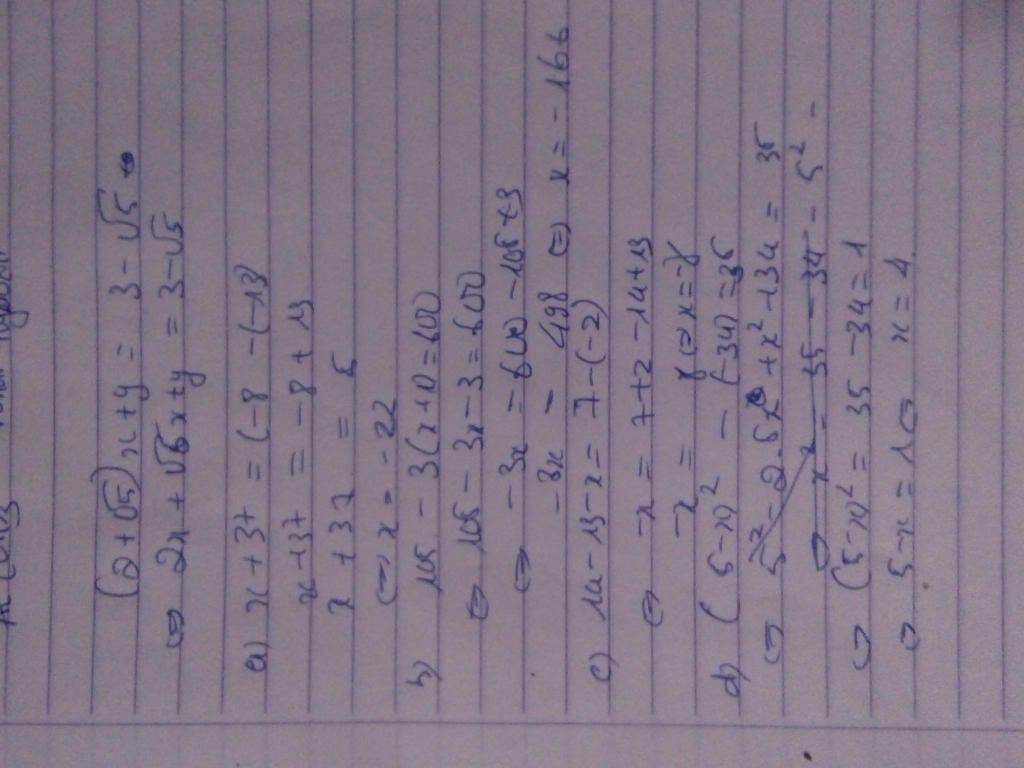 (2+√5)x+y = 3-√5
⇔ 2x+√5x+y = 3-√5
a) x+37 = (-8 -(-13)
x+37 = -8+13
x+37 = 5
⇔ x = -22
b) 105 - 3(x+1) = 600
⇔ 105 - 3x - 3 = 600
⇔ -3x = 600 - 105 + 3
-3x = 498 ⇔ x = -166
c) 14-13-x = 7-(-2)
⇔ -x = 7+2-14+13
-x = 8 ⇔ x = -8
d) (5-x)² - (-34) = 35
⇔ 5² - 2.5x + x² + 34 = 35
⇔ x = 35 - 34 - 5² -
⇔ (5-x)² = 35 - 34 = 1
⇔ 5-x = 1 ⇔ x = 4